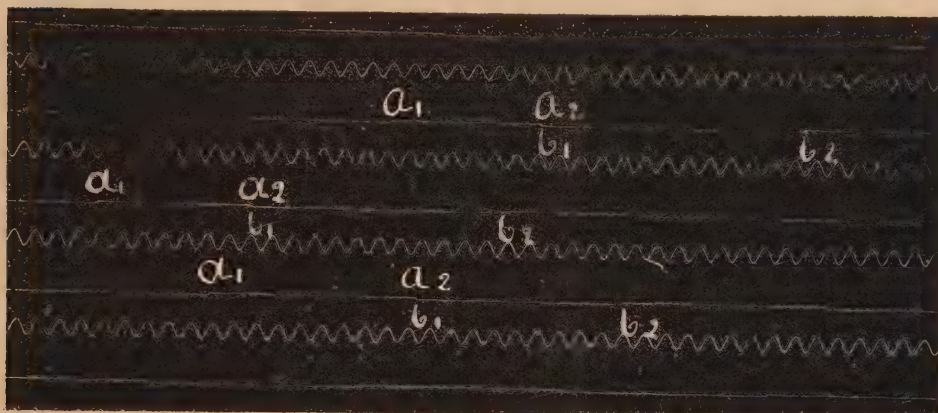 a1 a2
b1 b2
a1 a2
b1 b2
a1 a2
b1 b2